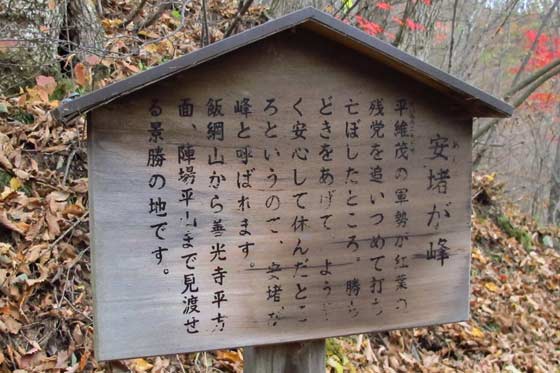 安堵が峰
平維茂の軍勢が紅葉の
残党を追いつめて打ち
亡ぼしたところ。勝ち
どきをあげて、ようや
く安心して休んだとこ
ろというので、安堵が
峰と呼ばれます。
飯綱山から善光寺平方
面、陣場平山まで見渡せ
る景勝の地です。